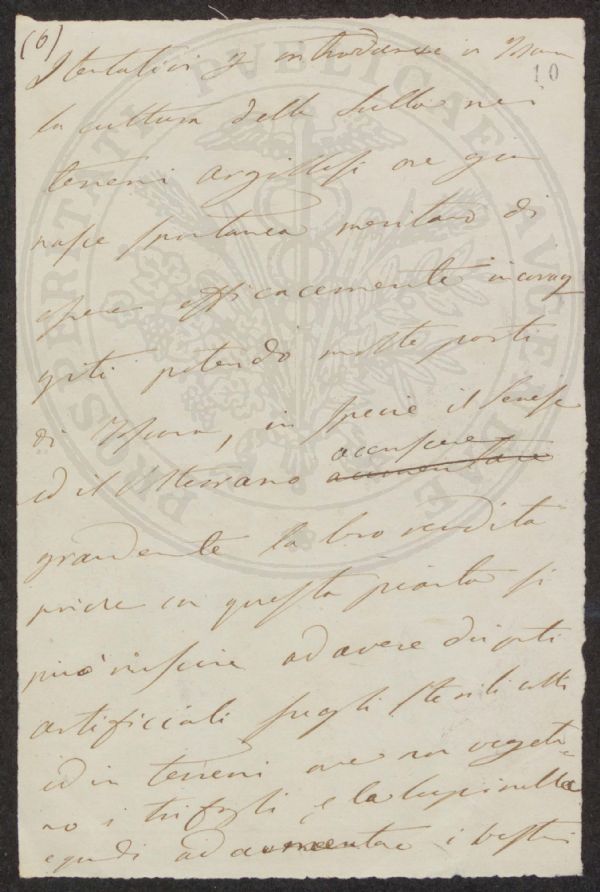 (6)
10
I tentativi p introdurre in Tosna
la cultura della Sulla nei
terreni argillosi ove gia
nasce spontanea meritano di
essere efficacemente incorag
giti potendo molte parti
di Toscana, in specie il Senese
ed il Volterrano accrescere
aumentare
grandente la loro rendita
poiche con questa pianta si
può riuscire ad avere dei prti
artificiali sugli sterili
ed in terreni ove non vegeta-
no i trifogli, e la lupinella
e quindi ad aumentare i besti
PROSPERITATI PVBLICAE AVGENDAE